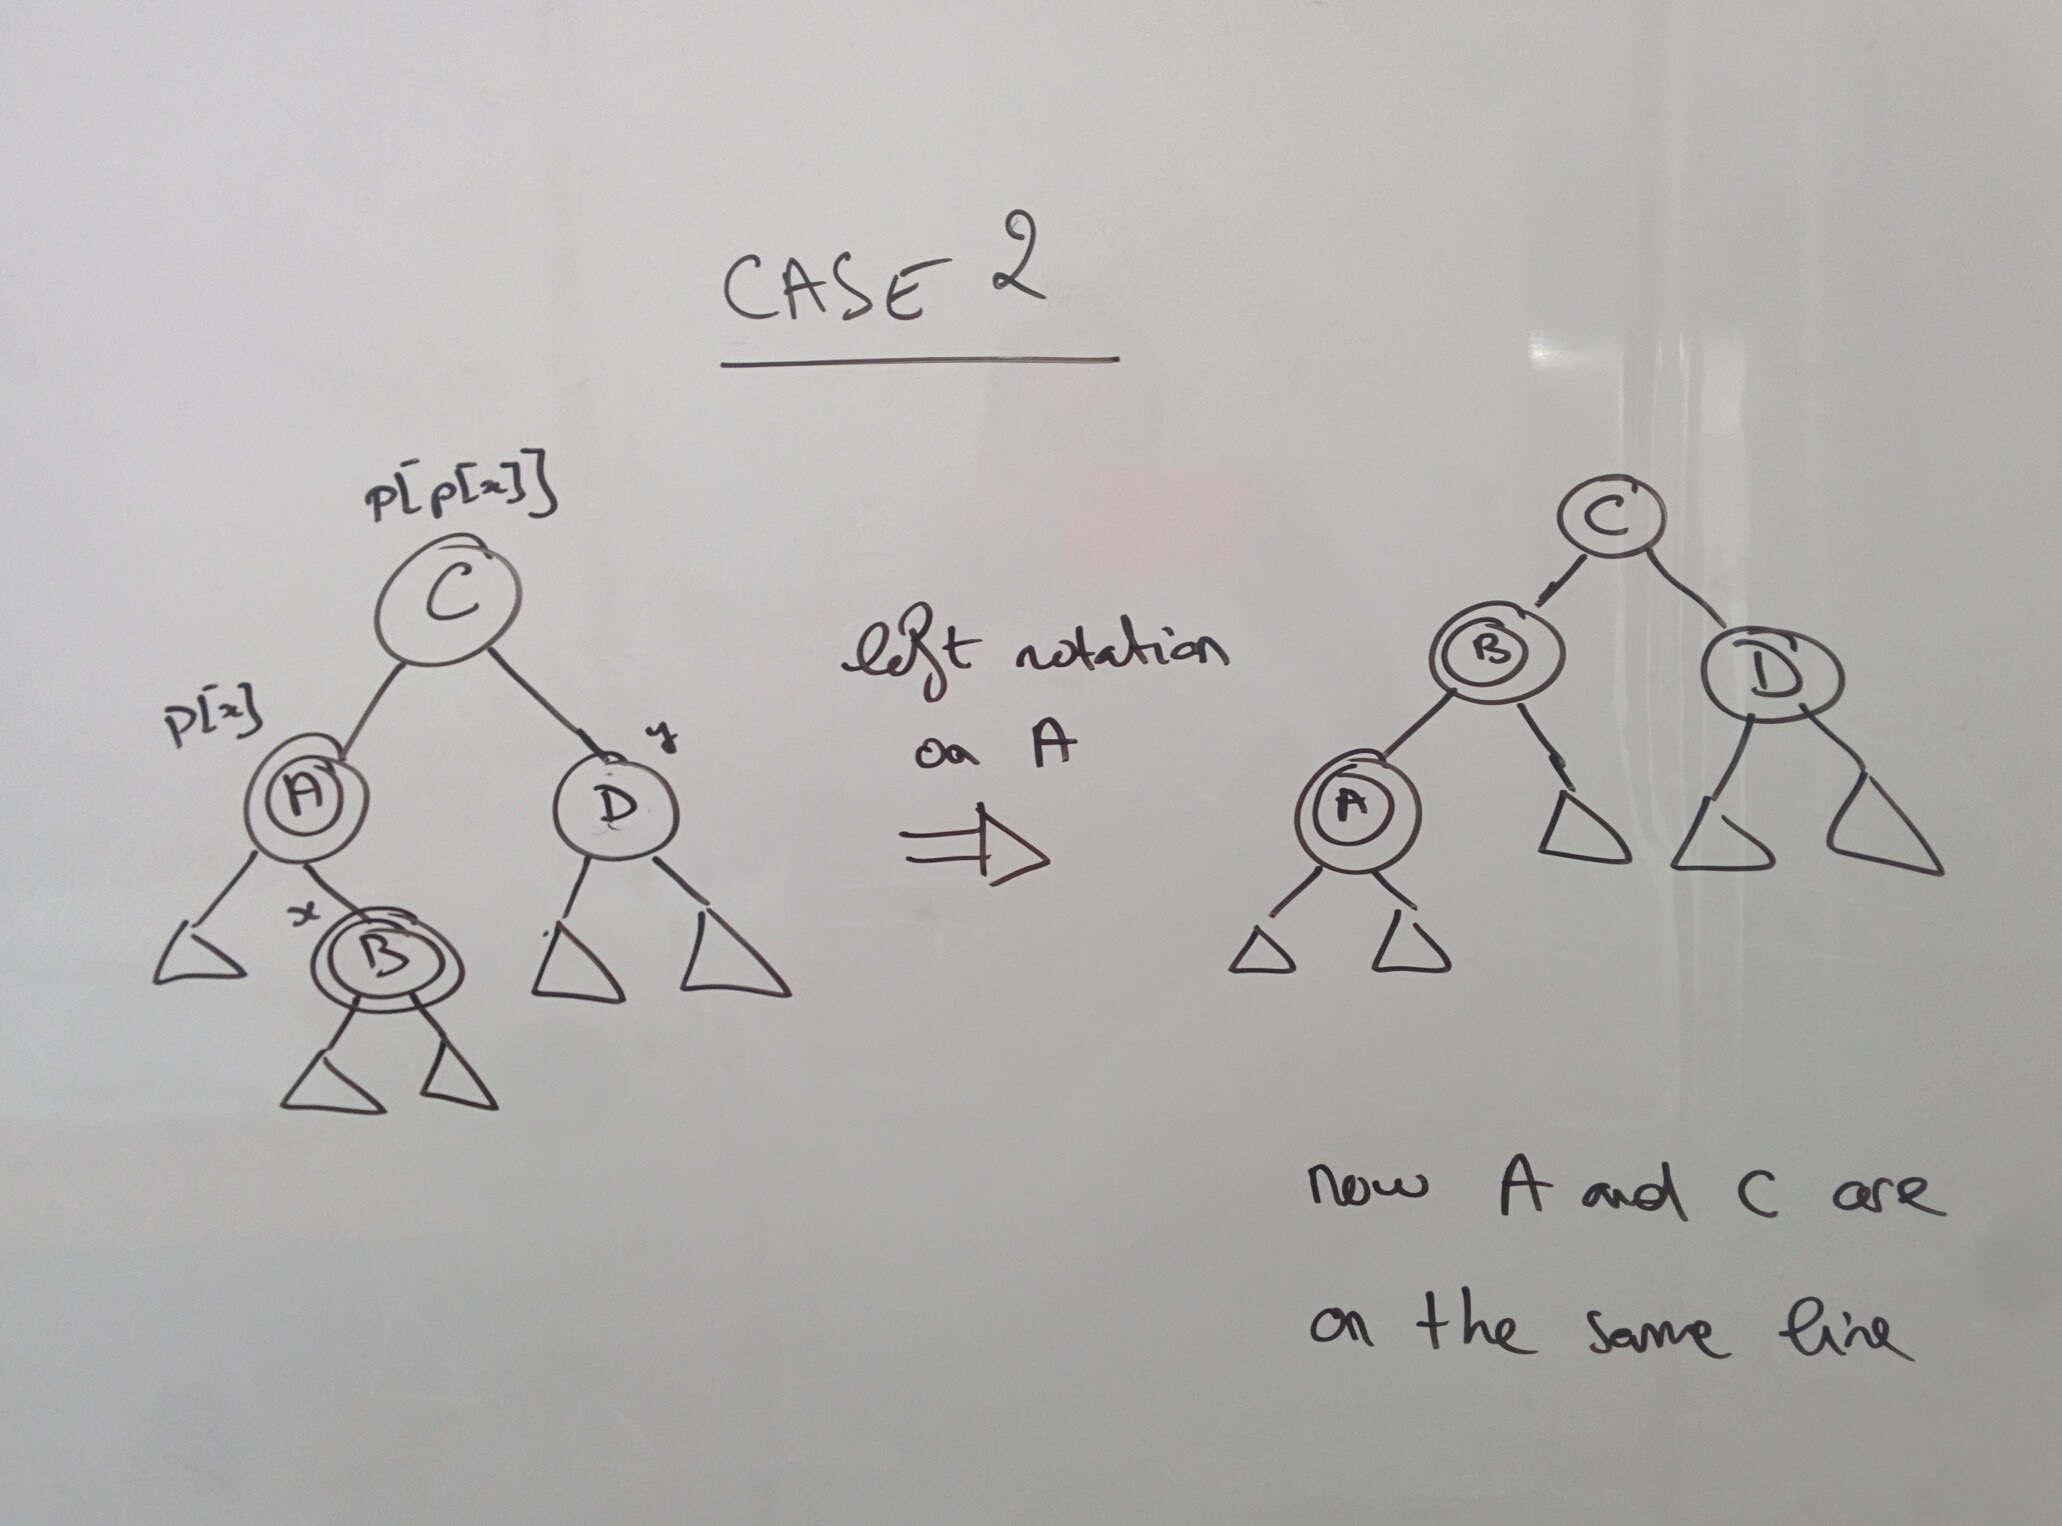 CASE 2
p[p[x]]
C
p[x]
A
y
D
x
B
left rotation
on A
C
B
D
A
now A and C are
on the same line